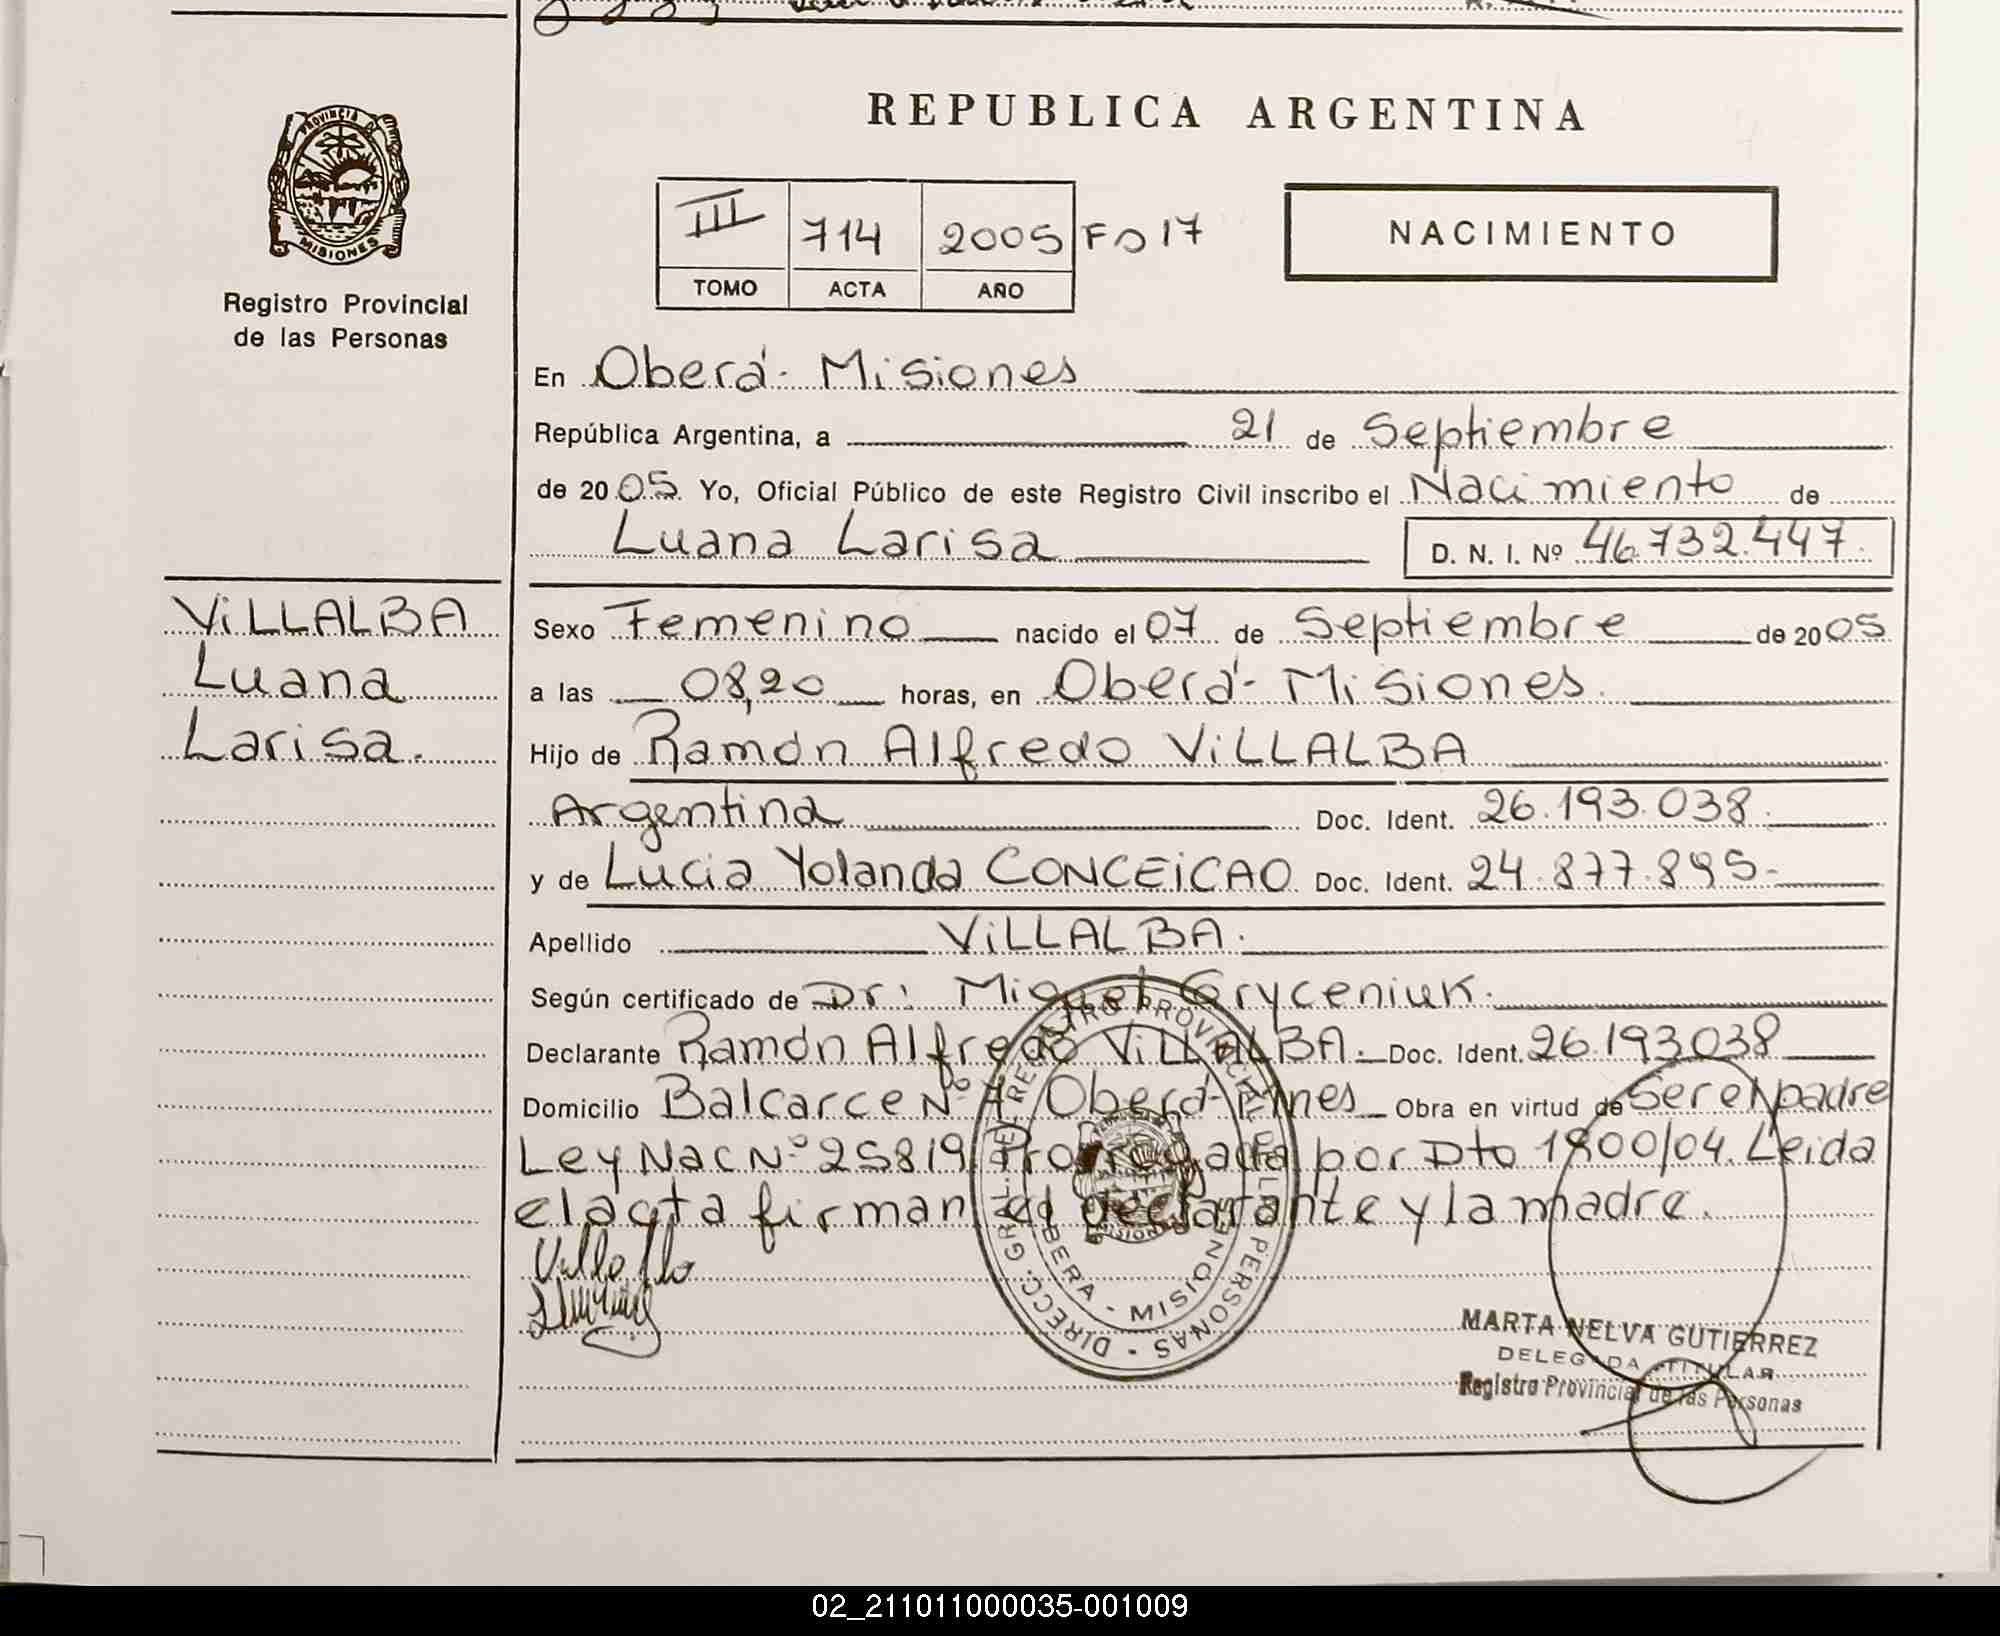 REPUBLICA ARGENTINA
PROVINCIA DE
MISIONES
Registro Provincial
de las Personas
III 714 2005 Fo 17
TOMO ACTA AÑO
NACIMIENTO
En Oberá - Misiones
República Argentina, a 21 de Septiembre
de 2005. Yo, Oficial Público de este Registro Civil inscribo el Nacimiento de
Luana Larisa D. N. I. Nº 46.732.447.
VILLALBA
Luana
Larisa.
Sexo Femenino nacido el 07 de Septiembre de 2005
a las 08,20 horas, en Oberá - Misiones.
Hijo de Ramón Alfredo VILLALBA
Argentina Doc. Ident. 26.193.038.
y de Lucia Yolanda CONCEICAO Doc. Ident. 24.877.895.-
Apellido VILLALBA.
Según certificado de Dr: Miguel Gryceniuk.
Declarante Ramón Alfredo VILLALBA. Doc. Ident. 26.193038
Domicilio Balcarce Nº Oberá - Mnes Obra en virtud de Ser el padre
Ley Nac Nº 25819 Prorrogada por Dto 1800/04. Leida
el acta firman el declarante y la madre.
DIRECC. GRAL. DEL REGISTRO PROVINCIAL DE LAS PERSONAS -
OBERA - MISIONES
MARTA NELVA GUTIERREZ
DELEGADA TITULAR
Registro Provincial de las Personas
02_211011000035-001009